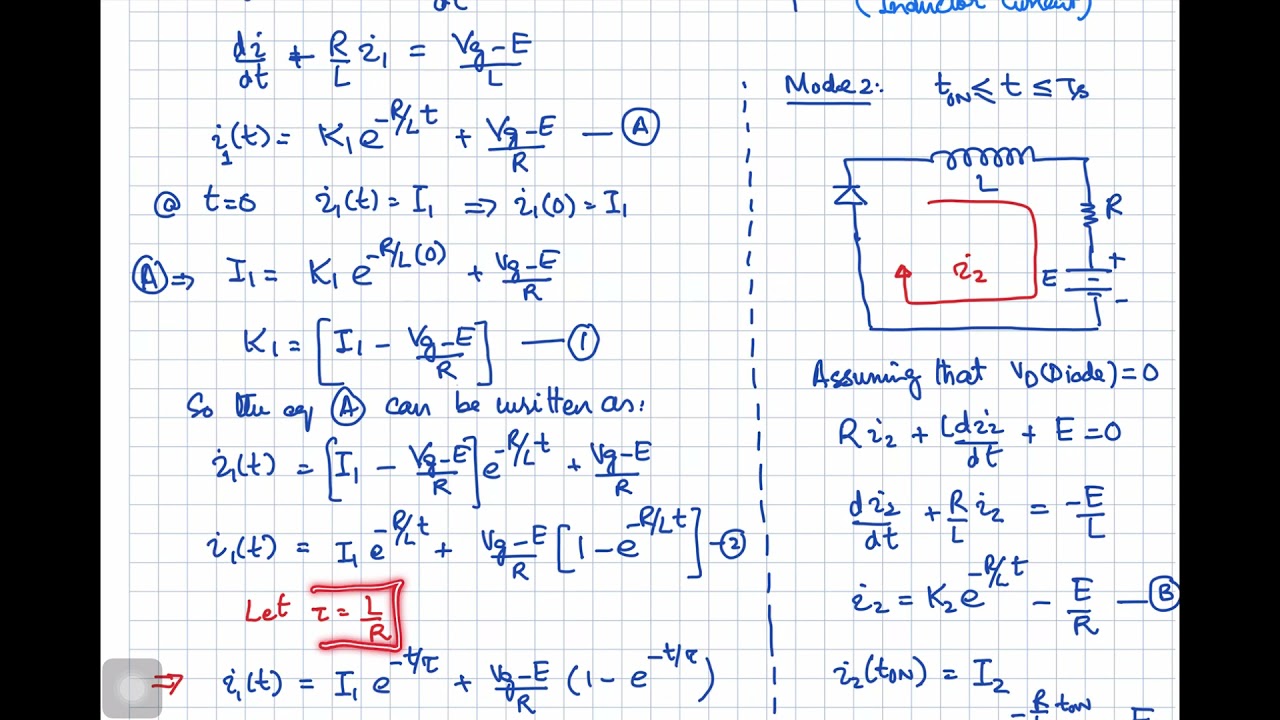 dt
di/dt + R/L i₁ = Vg-E/L
i₁(t) = K₁e^(-R/L t) + Vg-E/R — Ⓐ
@ t=0 i₁(t) = I₁ ⇒ i₁(0) = I₁
Ⓐ⇒ I₁ = K₁ e^(-R/L(0)) + Vg-E/R
K₁ = [I₁ - Vg-E/R] — ①
So the eq Ⓐ can be written as:
i₁(t) = [I₁ - Vg-E/R] e^(-R/L t) + Vg-E/R
i₁(t) = I₁ e^(-R/L t) + Vg-E/R [1-e^(-R/L t)] -②
Let τ = L/R
⇒ i₁(t) = I₁ e^(-t/τ) + Vg-E/R (1-e^(-t/τ))
(Inductor Current)
Mode 2: t_ON ≤ t ≤ Ts
L
R
i₂
E
+
-
Assuming that V_D(Diode) = 0
R i₂ + L di₂/dt + E = 0
di₂/dt + R/L i₂ = -E/L
i₂ = K₂e^(-R/L t) - E/R — Ⓑ
i₂(t_ON) = I₂